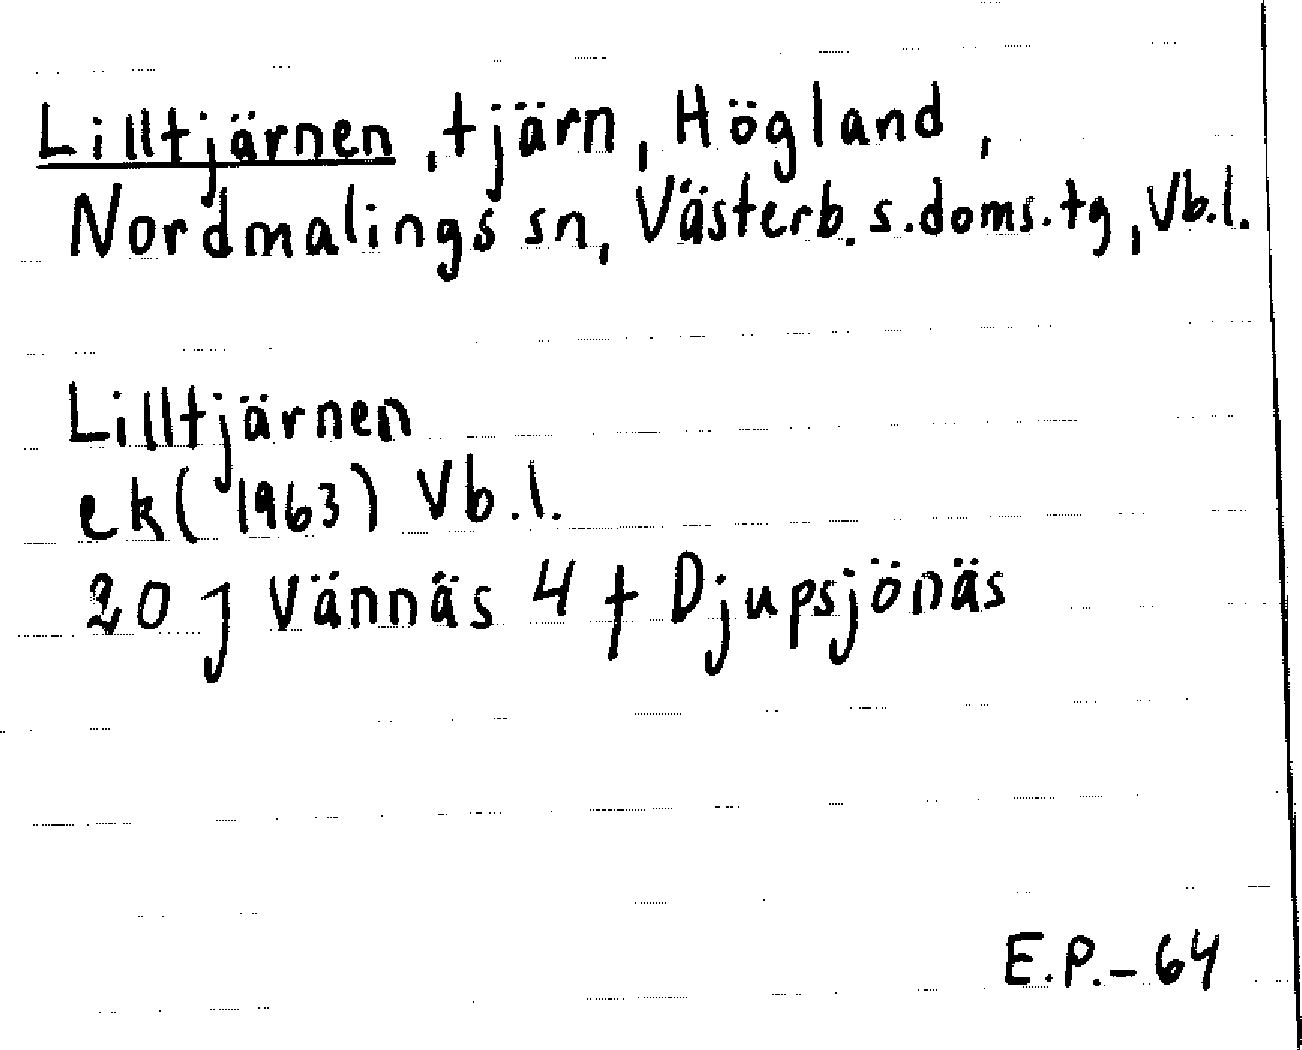 Lilltjärnen, tjärn, Högland,
Nordmalings sn, Västerb. s.doms.tg, Vb.l.
Lilltjärnen
ek(1963) Vb.l.
20 J Vännäs 4 f Djupsjönäs
E.P.-64